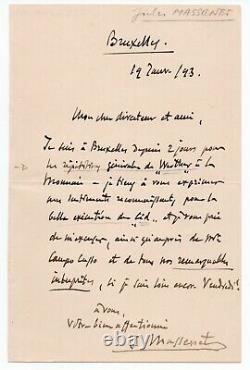 Jules MASSENET
Bruxelles.
19 Janv/93.
Mon cher directeur et ami,
Je suis à Bruxelles depuis 2 jours pour
les répétitions générales de "Werther" à la
Monnaie - je tiens à vous exprimer
mes sentiments reconnaissants pour la
belle exécution du "Cid". et je vous prie
de m'excuser, ainsi qu'auprès de Mr
Campo Casso et de tous nos remarquables
interprètes, si je suis loin encore Vendredi!
à vous,
Votre bien affectionné
J. Massenet